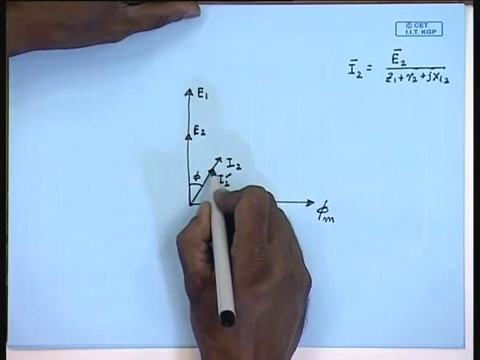 © CET
I.I.T. KGP
Ī₂ = Ē₂ / (z₁+r₂+jx₍₂)
E₁
E₂
φ
I₂
I₂′
φₘ